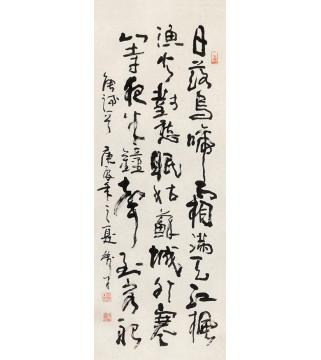 月落烏啼霜滿天江楓
漁火對愁眠姑蘇城外寒
山寺夜半鐘聲到客船
庚辰年之夏